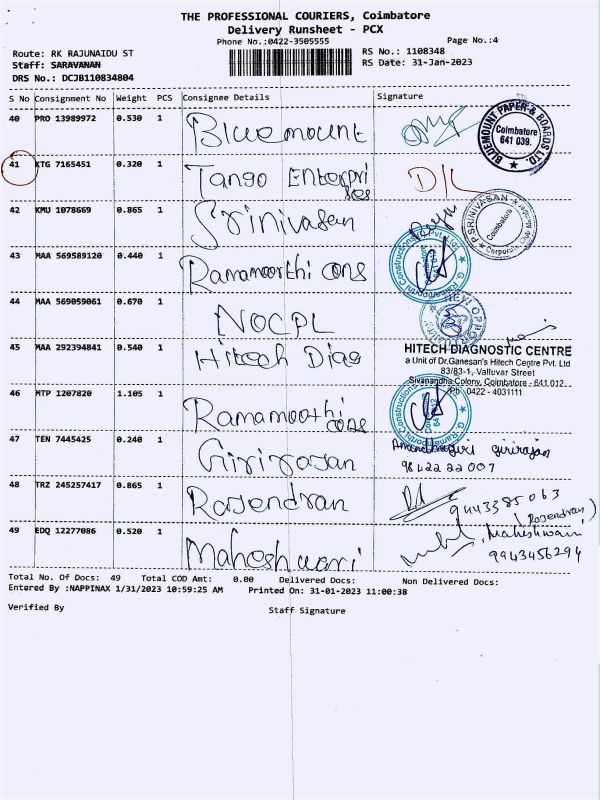 THE PROFESSIONAL COURIERS, Coimbatore
Delivery Runsheet - PCX
Phone No.:0422-3505555
Page No.:4
Route: RK RAJUNAIDU ST
RS No.: 1108348
Staff: SARAVANAN
RS Date: 31-Jan-2023
DRS No.: DCJB110834804
S No Consignment No Weight PCS Consignee Details Signature
40 PRO 13989972 0.530 1 Bluemount
BLUEMOUNT PAPER & BOARDS LTD. ★
Coimbatore
641 039.
41 KTG 7165451 0.320 1 Tango Enterpri
ses
D/L
42 KMU 1078669 0.865 1 Srinivasan
P. SRINIVASAN
Coimbatore
43 MAA 569589120 0.440 1 Ramamoorthi cons
G. Ramamoorthi Constructions Pvt. Ltd.
44 MAA 569059061 0.670 1 NOCPL
45 MAA 292394841 0.540 1 Hitech Diag
HITECH DIAGNOSTIC CENTRE
a Unit of Dr.Ganesan's Hitech Centre Pvt. Ltd
83/83-1, Valluvar Street
Sivanandha Colony, Coimbatore - 641 012
Ph : 0422 - 4031111
46 MTP 1207820 1.105 1 Ramamoorthi
cons
47 TEN 7445425 0.240 1 Girirajan
girirajan
98422 22007
48 TRZ 245257417 0.865 1 Rajendran
9443385063
(Rajendran)
49 EDQ 12277086 0.520 1 Maheshwari
Maheshwari
9943456294
Total No. Of Docs: 49 Total COD Amt: 0.00 Delivered Docs: Non Delivered Docs:
Entered By :NAPPINAX 1/31/2023 10:59:25 AM Printed On: 31-01-2023 11:00:38
Verified By
Staff Signature